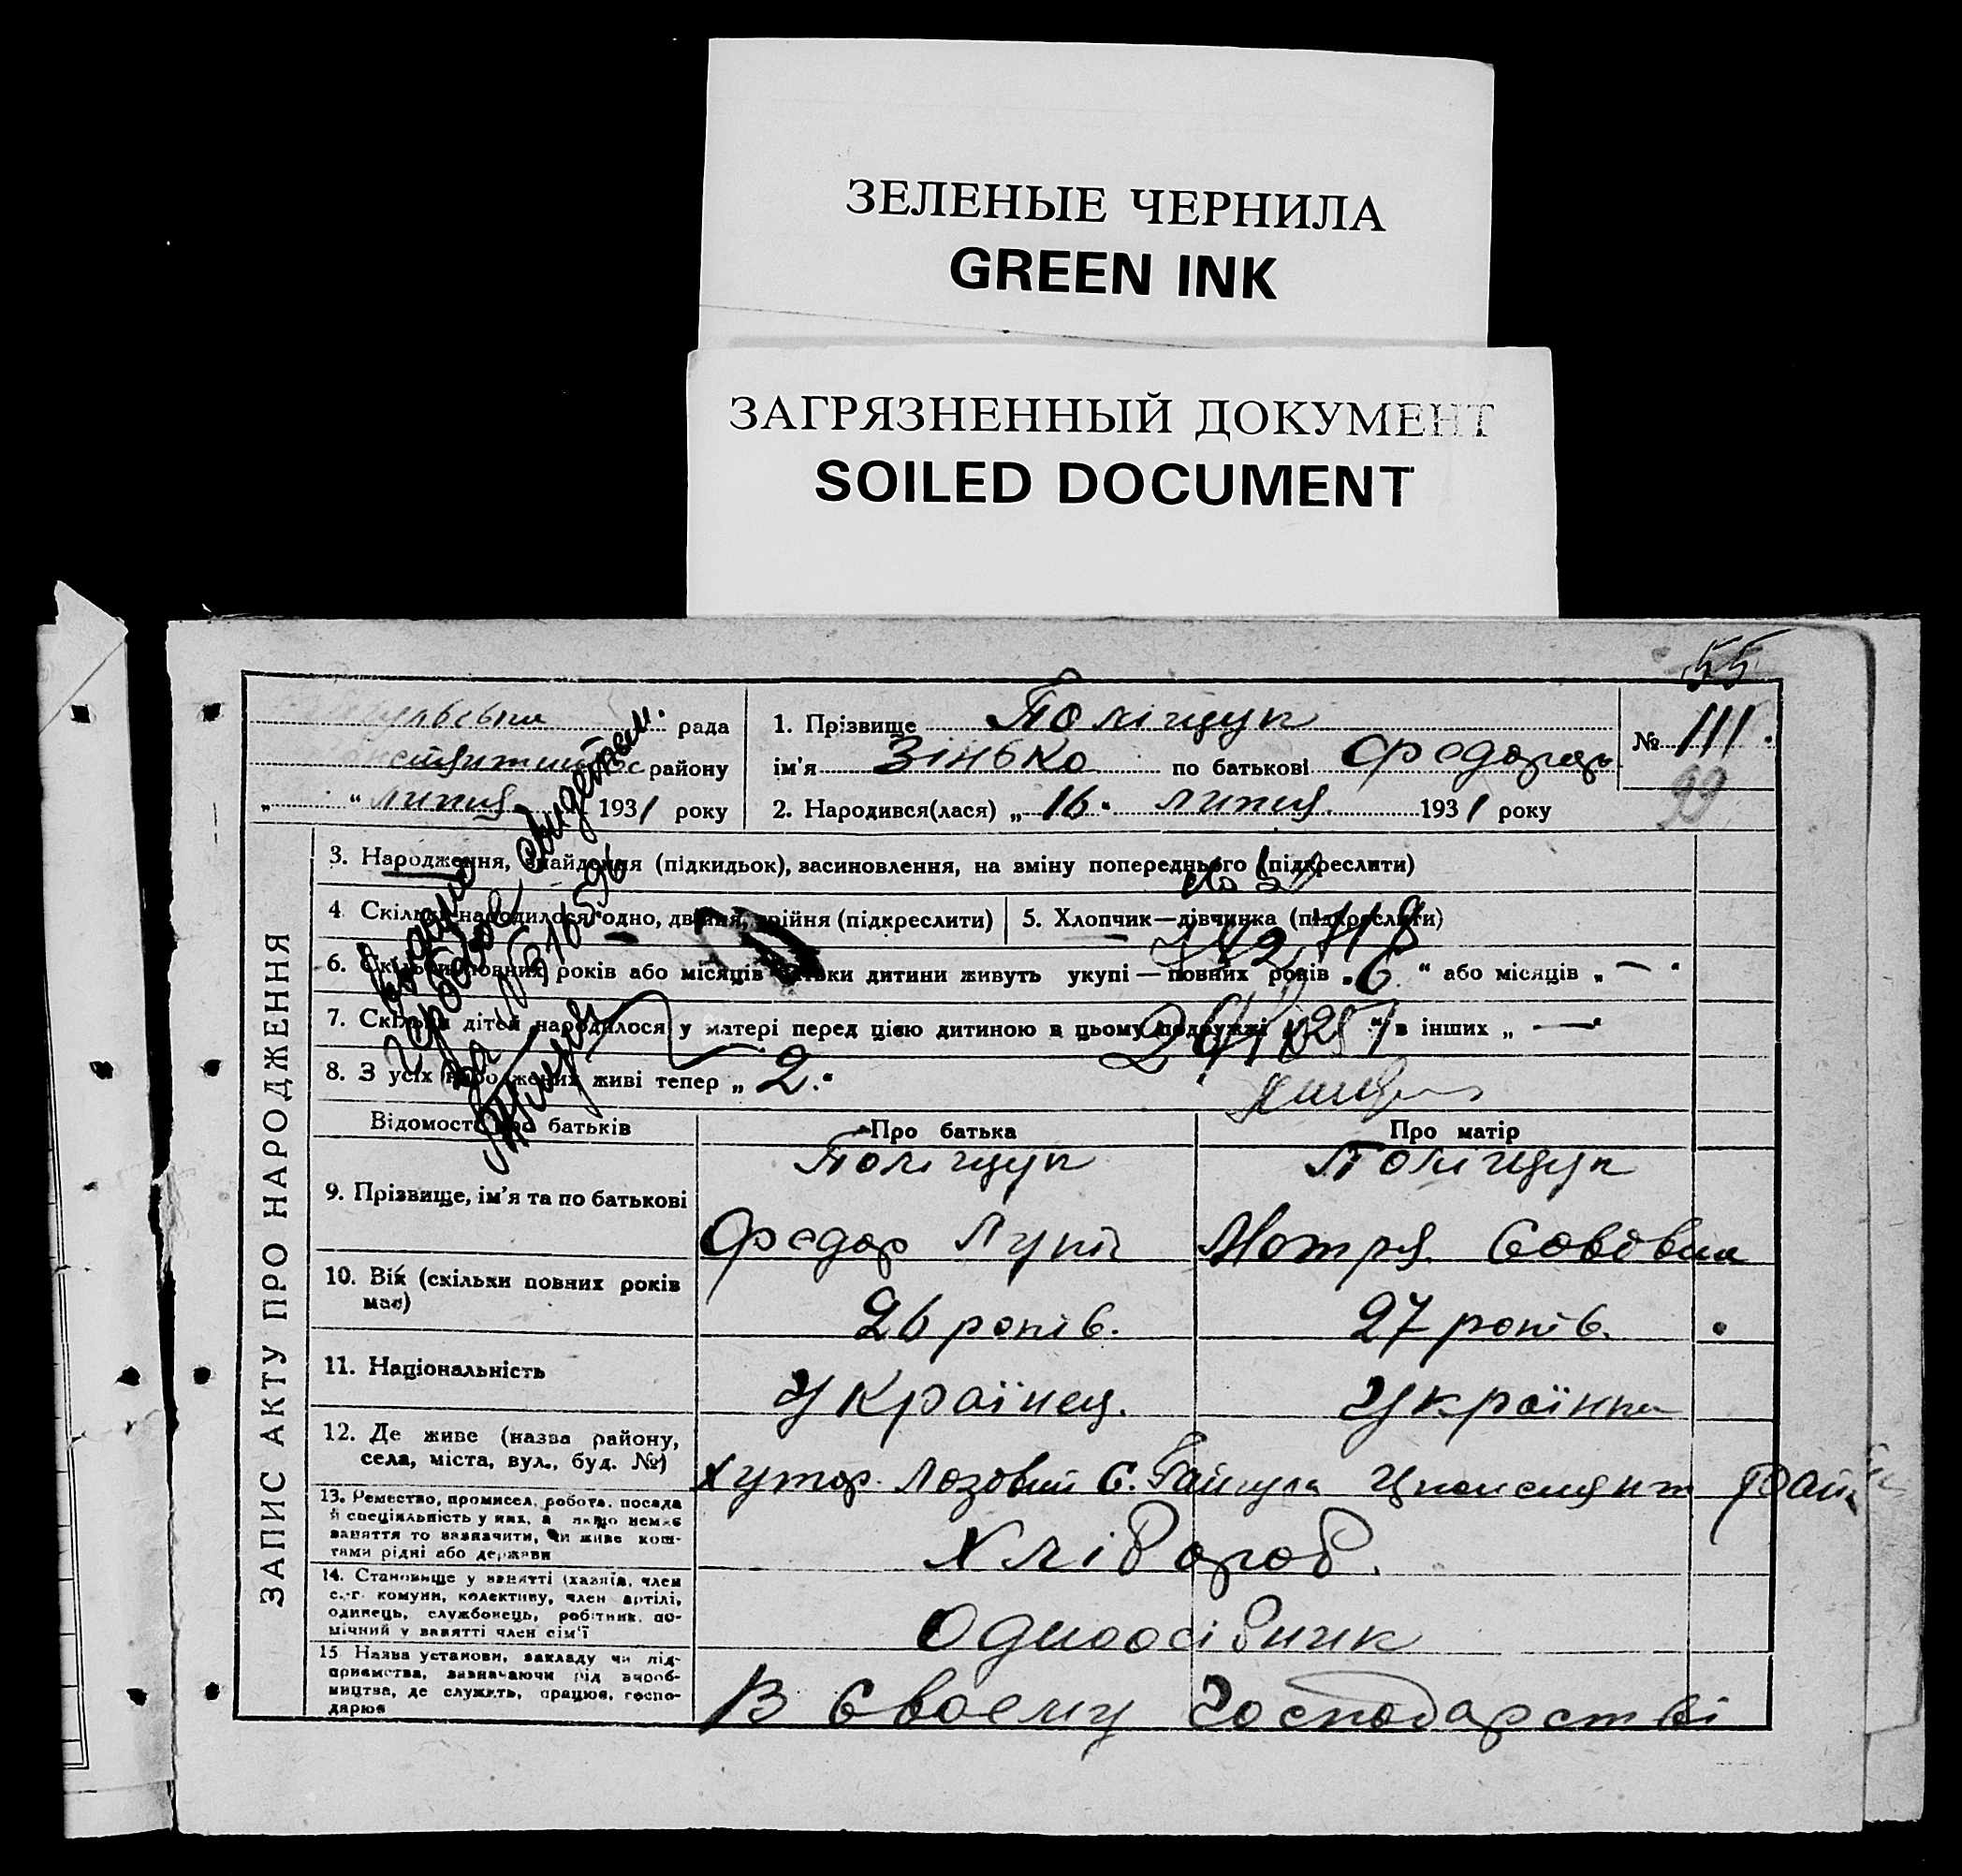 ЗЕЛЕНЫЕ ЧЕРНИЛА
GREEN INK
ЗАГРЯЗНЕННЫЙ ДОКУМЕНТ
SOILED DOCUMENT
55
рада
району
„ “ липня 1931 року
1. Прізвище Поліщук
ім'я Зінько по батькові Федоров
2. Народився(лася) „16“ липня 1931 року
№ 111.
99
ЗАПИС АКТУ ПРО НАРОДЖЕННЯ
3. Народження, знайдення (підкидьок), засиновлення, на зміну попереднього (підкреслити)
4. Скільки народилося: одно, двійня, трійня (підкреслити)
5. Хлопчик—дівчинка (підкреслити)
6. Скільки повних років або місяців батьки дитини живуть укупі—повних років „6“ або місяців „—“
7. Скільки дітей народилося у матері перед цією дитиною в цьому подружжі в інших „—“
8. З усіх народжених живі тепер „2.“
видано свидетел.
Відомості про батьків
Про батька
Про матір
9. Прізвище, ім'я та по батькові
Поліщук
Федор Лукіч
Поліщук
Мотря Совівна
10. Вік (скільки повних років має)
26 років.
27 років.
11. Національність
Українец.
Українка
12. Де живе (назва району,
села, міста, вул., буд. №)
Хутор Лозовий С. район
13. Ремество, промисел, робота, посада
й спеціяльність у них, а якщо немає
заняття то зазначити, чи живе кош-
тами рідні або держави
Хлібороб.
14. Становище у занятті (хазяїн, член
с.-г. комуни, колективу, член артілі,
одинець, службовець, робітник, по-
мічний у занятті член сім'ї
Одноосібник
15 Назва установи, закладу чи під-
приємства, зазначаючи рід вироб-
ництва, де служить, працює, госпо-
дарює
В своему господарстві